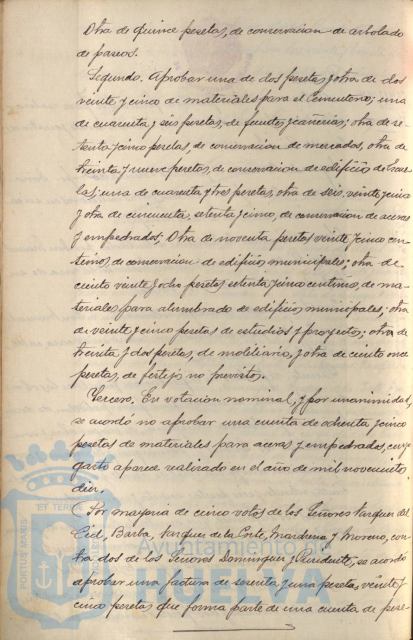 Otra de quince pesetas, de conservacion de arbolado
de paseos.
Segundo. Aprobar una de dos pesetas y otra de dos
veinte y cinco de materiales para el Cementerio; una
de cuarenta y seis pesetas, de fuentes y cañerias; otra de se-
tenta y cinco pesetas, de conservacion de mercados, otra de
treinta y nueve pesetas, de conservacion de edificio de Escue
las; una de cuarenta y tres pesetas, otra de seis, veinte y cinco
y otra de cincuenta, setenta y cinco, de conservacion de aceras
y empedrados; Otra de noventa pesetas veinte y cinco cen-
timos, de conservacion de edificios municipales; otra de
ciento veinte y ocho pesetas setenta y cinco centimos, de ma-
teriales para alumbrado de edificios municipales; otra
de veinte y cinco pesetas de estudios y proyectos; otra de
treinta y dos pesetas, de mobiliario, y otra de ciento once
pesetas, de festejos no previstos.
Tercero. En votación nominal, y por unanimidad,
se acordó no aprobar una cuenta de ochenta y cinco
pesetas de materiales para aceras y empedrados, cuyo
gasto aparece realizado en el año de mil novecientos
diez.
Por mayoria de cinco votos de los Señores Vazquez del
Cid, Barba, Vazquez de la Corte, Marchena y Moreno, con
tra dos de los Señores Dominguez y Presidente, se acordo
aprobar una factura de sesenta y una pesetas, veinte y
cinco pesetas que forma parte de una cuenta de pese-
PORTUS MARIS
ET TERRÆ
Ayuntamiento de
HUELVA